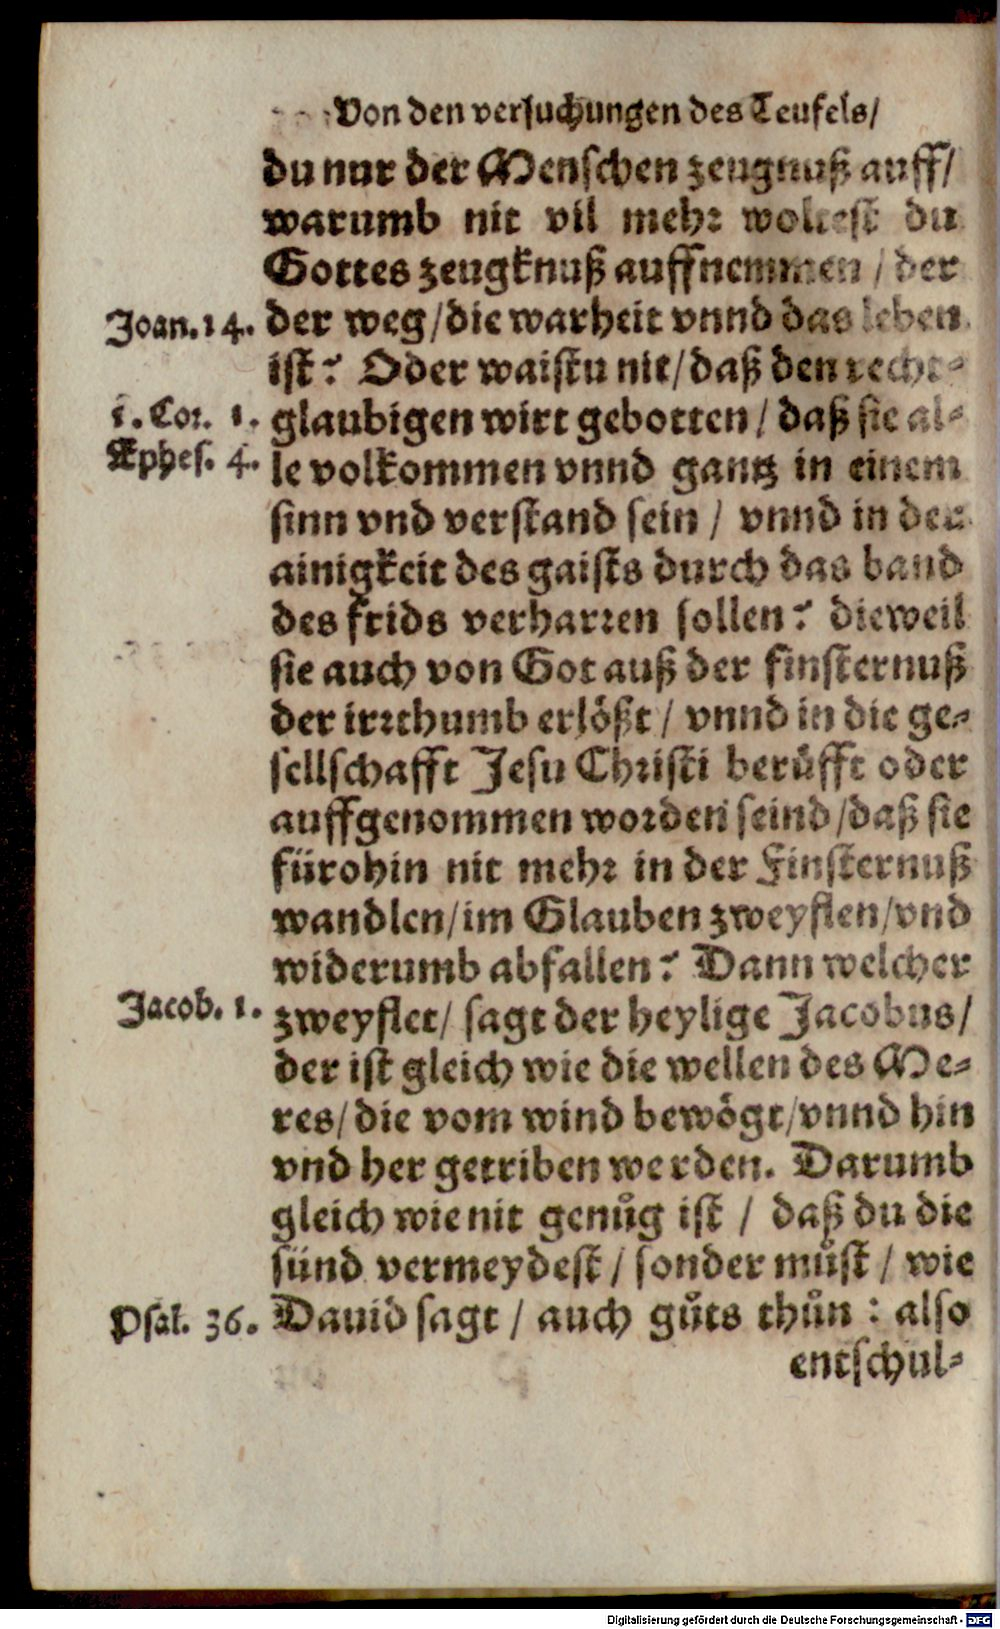 Von den versuchungen des Teufels/
du nur der Menschen zeugnuß auff/
warumb nit vil mehr woltest du
Gottes zeugknuß auffnemmen / der
Joan. 14. der weg/die warheit vnnd das leben
ist? Oder waistu nit/daß den recht-
1. Cor. 1. glaubigen wirt gebotten/ daß sie al-
Ephes. 4. le volkommen vnnd gantz in einem
sinn vnd verstand sein / vnnd in der
ainigkeit des gaists durch das band
des frids verharren sollen? dieweil
sie auch von Got auß der finsternuß
der irrthumb erlößt / vnnd in die ge-
sellschafft Jesu Christi berůfft oder
auffgenommen worden seind/daß sie
fürohin nit mehr in der Finsternuß
wandlen/im Glauben zweyflen/vnd
widerumb abfallen? Dann welcher
Jacob. 1. zweyflet/ sagt der heylige Jacobus/
der ist gleich wie die wellen des Me-
res/die vom wind bewögt/vnnd hin
vnd her getriben werden. Darumb
gleich wie nit genůg ist / daß du die
sünd vermeydest / sonder můst / wie
Psal. 36. Dauid sagt / auch gůts thůn : also
entschul-
Digitalisierung gefördert durch die Deutsche Forschungsgemeinschaft - DFG